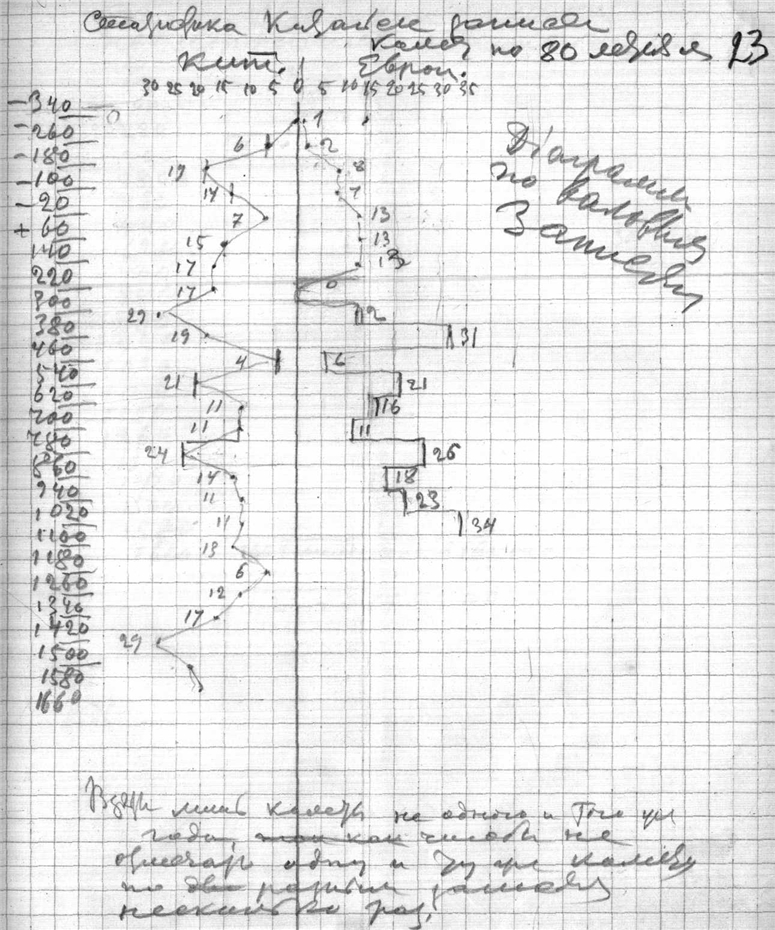 комет по 80 летiям 23
Кит. Европ.
30 25 20 15 10 5 0 5 10 15 20 25 30 35
-340 0 1
-260 6 2
-180 19 8
-100 14 7
-20 7 13
+60 13
140 15 13
220 17 0
300 17
380 29 12
460 19 31
540 4 6
620 21 21
700 11 16
780 11 11
860 24 26
940 14 18
1020 11 23
1100 11 34
1180 13
1260 6
1340 12
1420 17
1500 29
1580
1660
Дiаграмма
по валовым
Записям
лишь кометы не одного и того же
года, чтобы не
отмечать одну и ту же комету
по разным записям
несколько раз.